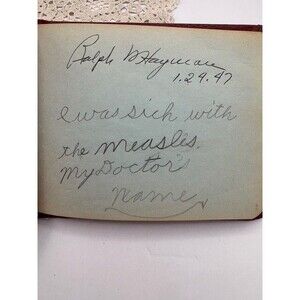 Ralph W Hayman
1.29.47
I was sick with
the measles.
My Doctor's
name